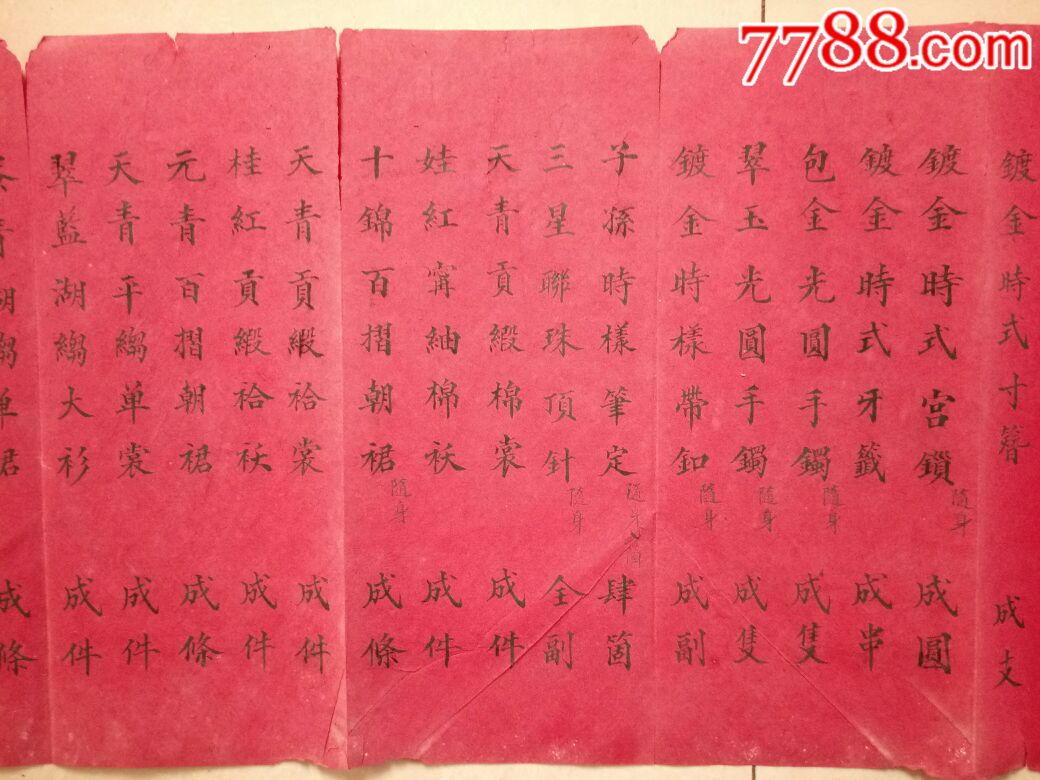 7788.com
鍍金時式寸簪 成支
鍍金時式宮鎖 隨身 成圓
鍍金時式牙籤 成串
包金光圓手鐲 隨身 成隻
翠玉光圓手鐲 隨身 成隻
鍍金時樣帶釦 隨身 成副
子孫時樣筆定 隨身 肆箇
三星聯珠頂針 隨身 全副
天青貢緞棉裳 成件
娃紅甯紬棉袄 成件
十錦百摺朝裙 隨身 成條
天青貢緞袷裳 成件
桂紅貢緞袷袄 成件
元青百摺朝裙 成條
天青平縐单裳 成件
翠藍湖縐大衫 成件
青湖縐单裙 成條